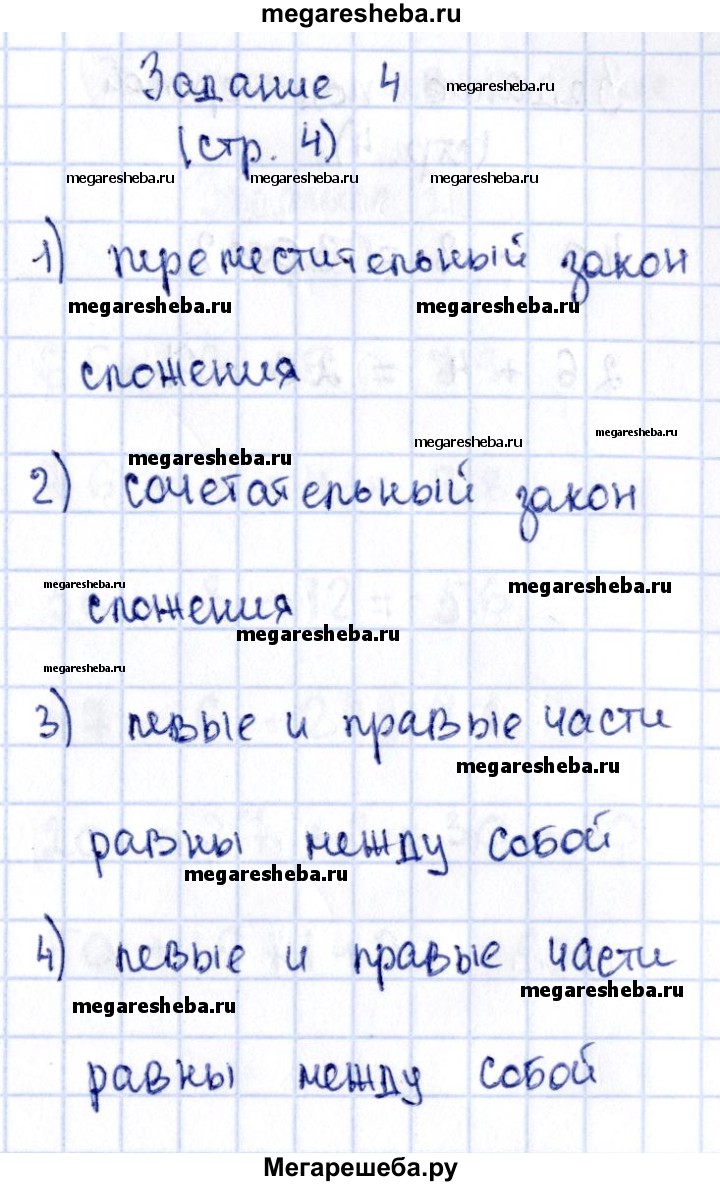 megaresheba.ru
Задание 4 megaresheba.ru
(стр. 4)
megaresheba.ru megaresheba.ru megaresheba.ru
1) переместительный закон
megaresheba.ru megaresheba.ru
сложения
megaresheba.ru megaresheba.ru
megaresheba.ru
2) сочетательный закон
megaresheba.ru megaresheba.ru
сложения
megaresheba.ru
megaresheba.ru
3) левые и правые части
megaresheba.ru
равны между собой
megaresheba.ru
4) левые и правые части
megaresheba.ru
megaresheba.ru
равны между собой
Мегарешеба.ру